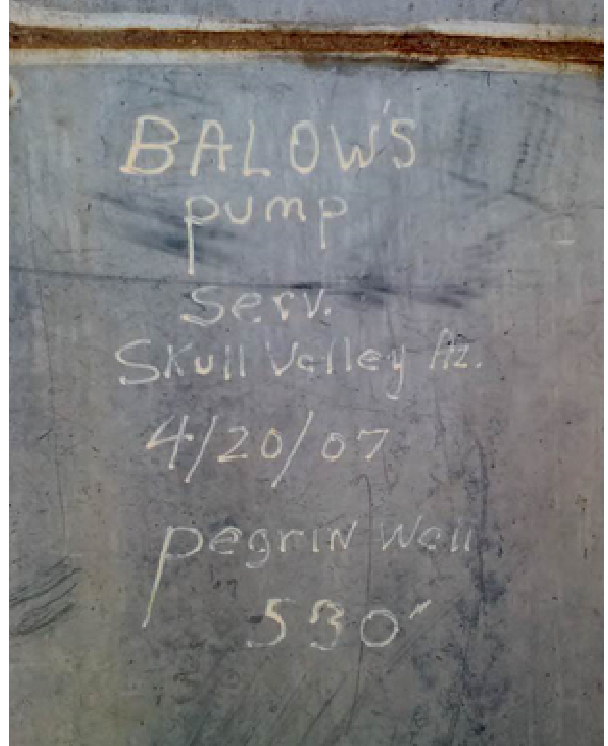 BALOW'S
pump
Serv.
Skull Valley Az.
4/20/07
pegrin Well
530"